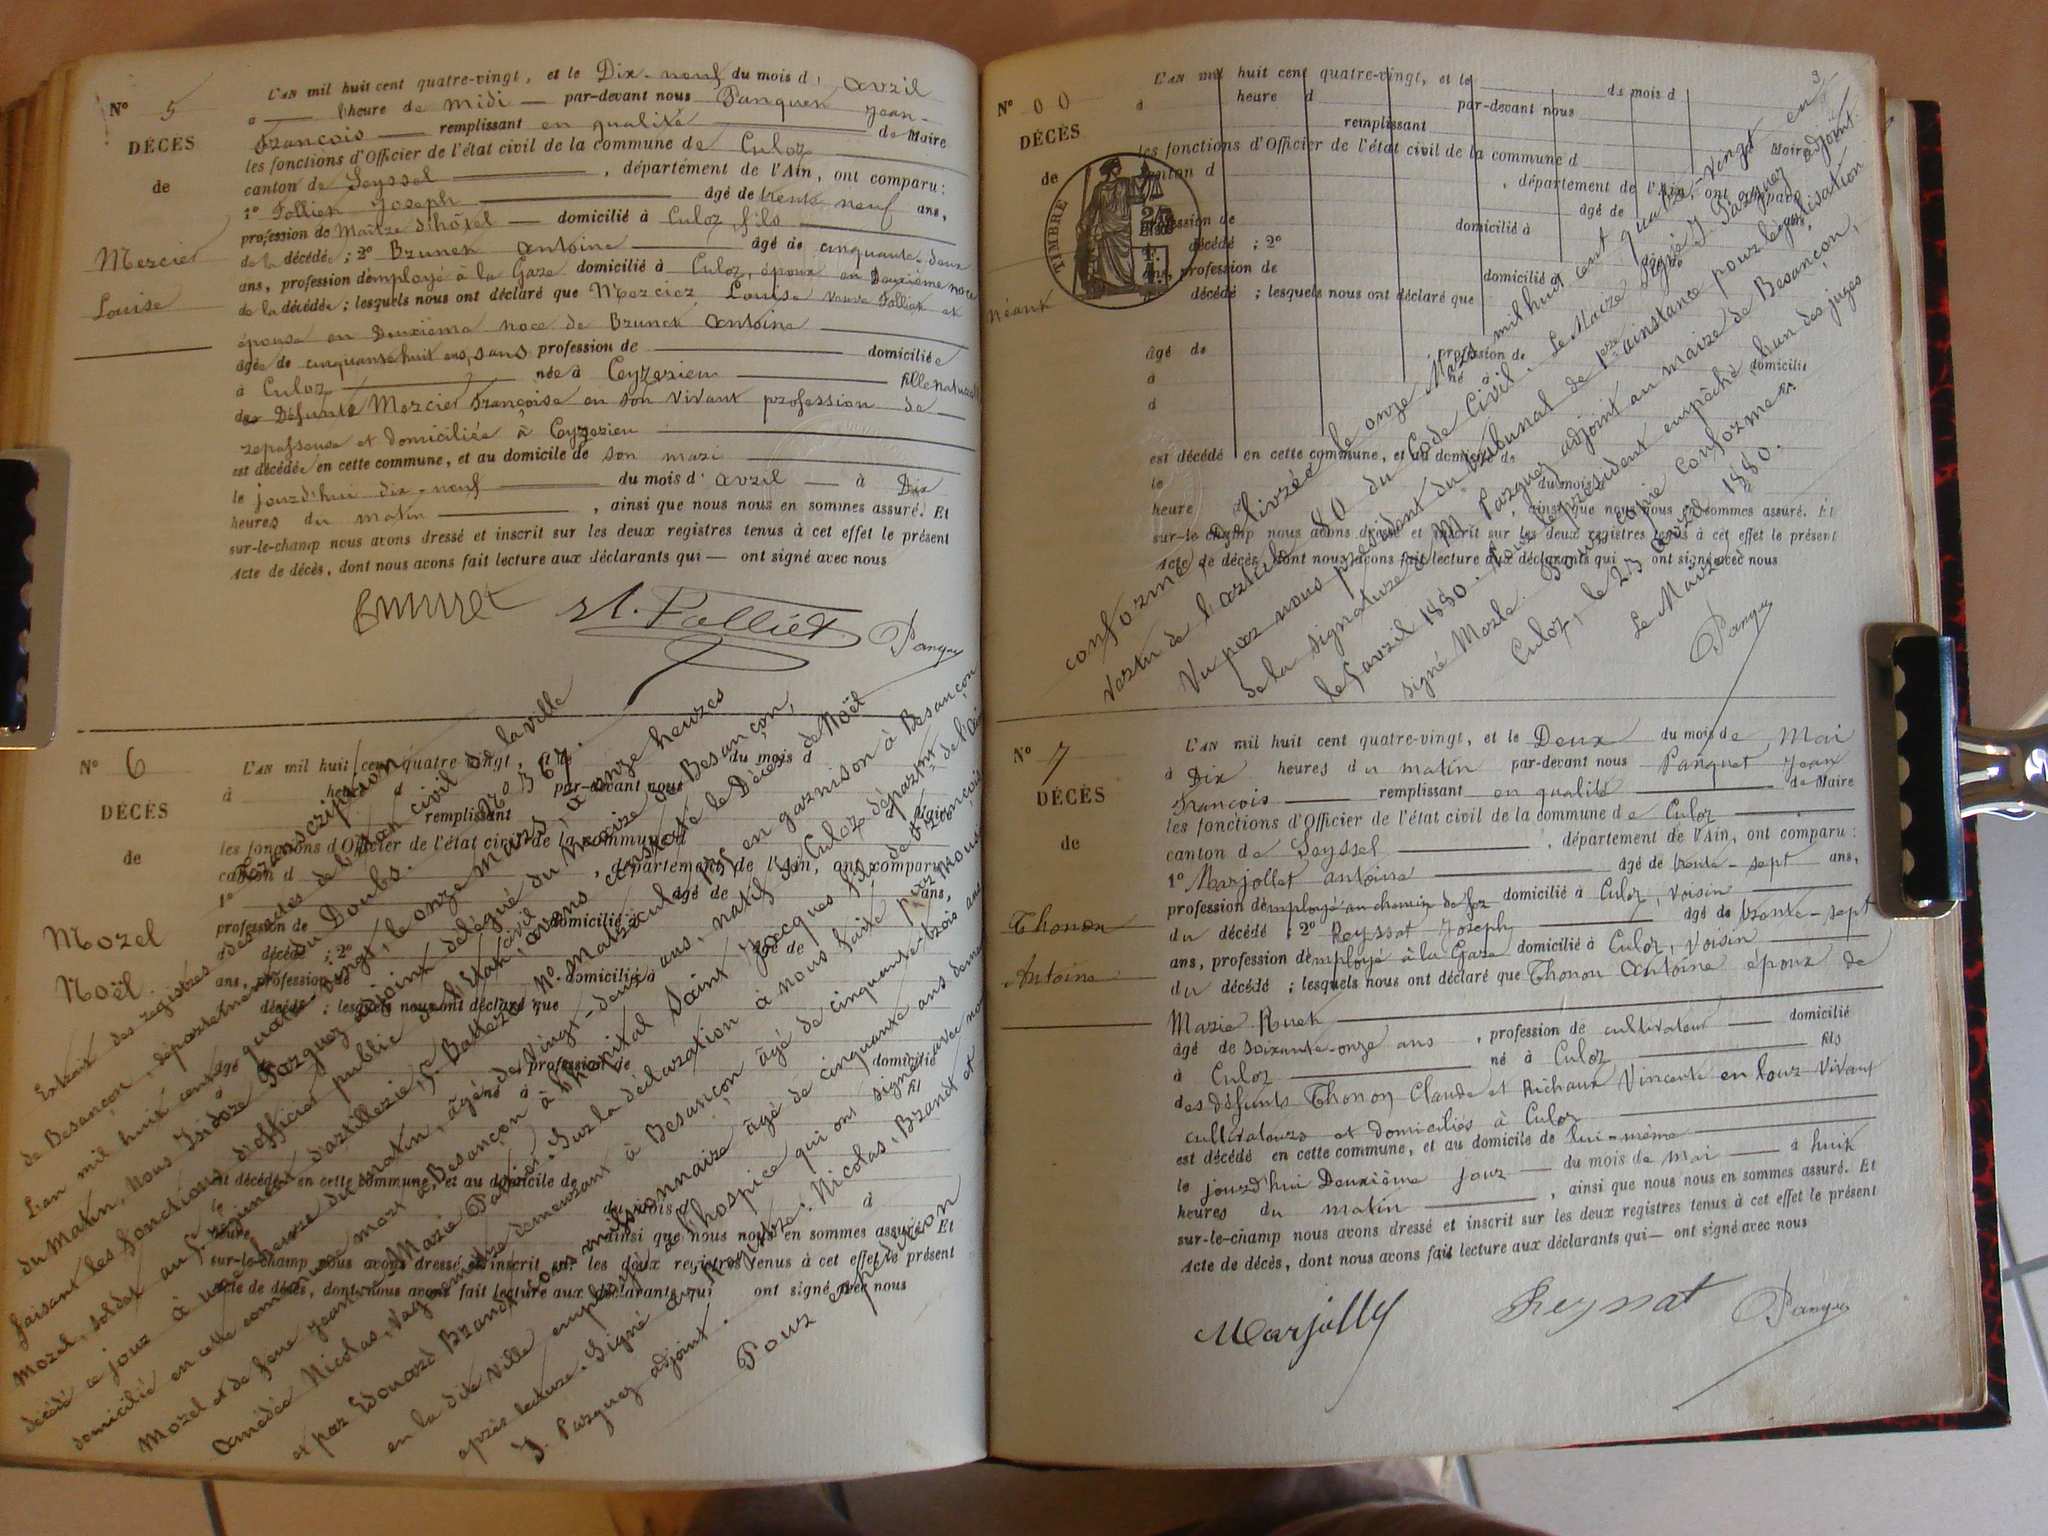 N° 5
DÉCÈS
de
Mercier
Louise
L'AN mil huit cent quatre-vingt, et le Dix-neuf du mois d' avril
à heure de midi par-devant nous Panquet Jean-
François remplissant en qualité de Maire
les fonctions d'Officier de l'état civil de la commune de Culoz
canton de Seyssel, département de l'Ain, ont comparu :
1° Folliet Joseph âgé de trente neuf ans,
profession de Maître d'hôtel domicilié à Culoz fils
de la décédée ; 2° Brunet Antoine âgé de cinquante-deux
ans, profession d'employé à la Gare domicilié à Culoz, époux en Deuxième noce
de la décédée ; lesquels nous ont déclaré que Mercier Louise veuve Folliet et
épouse en Deuxième noce de Brunet Antoine
âgée de cinquante huit ans, sans profession de domiciliée
à Culoz née à Ceyzerieu fille naturelle
de Défunte Mercier Françoise en son vivant profession de
repasseuse et domiciliée à Ceyzerieu
est décédée en cette commune, et au domicile de son mari
le jourd'hui dix-neuf du mois d' avril à Dix
heures du matin, ainsi que nous nous en sommes assuré. Et
sur-le-champ nous avons dressé et inscrit sur les deux registres tenus à cet effet le présent
Acte de décès, dont nous avons fait lecture aux déclarants qui — ont signé avec nous
Brunet Folliet Panquet
N° 6
DÉCÈS
de
Morel
Noël
L'AN mil huit cent quatre-vingt, du mois d
à heure d par-devant nous
remplissant
les fonctions d'Officier de l'état civil de la commune d
canton d, département de l'Ain, ont comparu :
1° âgé de ans,
profession de domicilié à
décédé ; 2° âgé de
ans, profession de domicilié à
décédé ; lesquels nous ont déclaré que
âgé de profession de domicilié
né à fil
est décédé en cette commune, et au domicile de
du mois d à
heure ainsi que nous nous en sommes assuré. Et
sur-le-champ nous avons dressé et inscrit sur les deux registres tenus à cet effet le présent
Acte de décès, dont nous avons fait lecture aux déclarants qui ont signé avec nous
Transcription
Extrait des registres des actes de l'état civil de la ville
de Besançon, département du Doubs. N° 367.
L'an mil huit cent quatre-vingt, le onze mars, à onze heures
du matin, Nous Isidore Parguez adjoint délégué du Maire de Besançon,
faisant les fonctions d'officier public de l'État civil, avons constaté le Décès de Noël
Morel, soldat au 5e régiment d'artillerie, Batterie, N° Matricule en garnison à Besançon
décédé ce jour à une heure du matin, âgé de vingt-deux ans, natif de Culoz départmt de l'Ain
domicilié en cette commune mort à Besançon à l'hôpital Saint Jacques fils de François
Morel et de feue Jeanne-Marie Sur la déclaration à nous faite par
Amédée Nicolas, demeurant à Besançon âgé de cinquante-trois ans
et par Edouard Brandt missionnaire âgé de cinquante ans
en la dite ville employés de l'hospice qui ont signé avec nous
après lecture. Signé au Registre : Nicolas, Brandt et
J. Parguez adjoint.
Pour expédition
3
N° 00
DÉCÈS
de
néant
TIMBRE
L'AN mil huit cent quatre-vingt, et le du mois d
à heure d par-devant nous
remplissant Maire
les fonctions d'Officier de l'état civil de la commune d
canton d, département de l'Ain, ont comparu
âgé de
profession de domicilié à
décédé ; 2°
ans, profession de domicilié à
décédé ; lesquels nous ont déclaré que
âgé de profession de
à né à domicilié
d
est décédé en cette commune, et au domicile de
le du mois
heure ainsi que nous nous en sommes assuré. Et
sur-le-champ nous avons dressé et inscrit sur les deux registres tenus à cet effet le présent
Acte de décès, dont nous avons fait lecture aux déclarants qui ont signé avec nous
conforme, Délivrée le onze Mars mil huit cent quatre-vingt en
vertu de l'article 80 du Code Civil. Le Maire Signé J. Parguez adjoint
Vu par nous président du tribunal de 1re instance pour légalisation
de la signature de M. Parguez adjoint au maire de Besançon,
le avril 1880. Pour le président empêché, l'un des juges
signé Pour copie conforme
Culoz, le 23 avril 1880.
Le Maire
Panquet
N° 7
DÉCÈS
de
Thonon
Antoine
L'AN mil huit cent quatre-vingt, et le Deux du mois de Mai
à Dix heures du matin par-devant nous Panquet Jean
François remplissant en qualité de Maire
les fonctions d'Officier de l'état civil de la commune de Culoz
canton de Seyssel, département de l'Ain, ont comparu :
1° Marjollet Antoine âgé de trente-sept ans,
profession d'employé au chemin de fer domicilié à Culoz, voisin
du décédé ; 2° Reyssat Joseph âgé de trente-sept
ans, profession d'employé à la Gare domicilié à Culoz, voisin
du décédé ; lesquels nous ont déclaré que Thonon Antoine époux de
Marie
âgé de soixante-onze ans, profession de cultivateur domicilié
à Culoz né à Culoz fils
des défunts Thonon Claude et Richaux Vincente en leur vivant
cultivateurs et domiciliés à Culoz
est décédé en cette commune, et au domicile de lui-même
le jourd'hui Deuxième jour du mois de mai à huit
heures du matin, ainsi que nous nous en sommes assuré. Et
sur-le-champ nous avons dressé et inscrit sur les deux registres tenus à cet effet le présent
Acte de décès, dont nous avons fait lecture aux déclarants qui — ont signé avec nous
Marjolly Reyssat Panquet